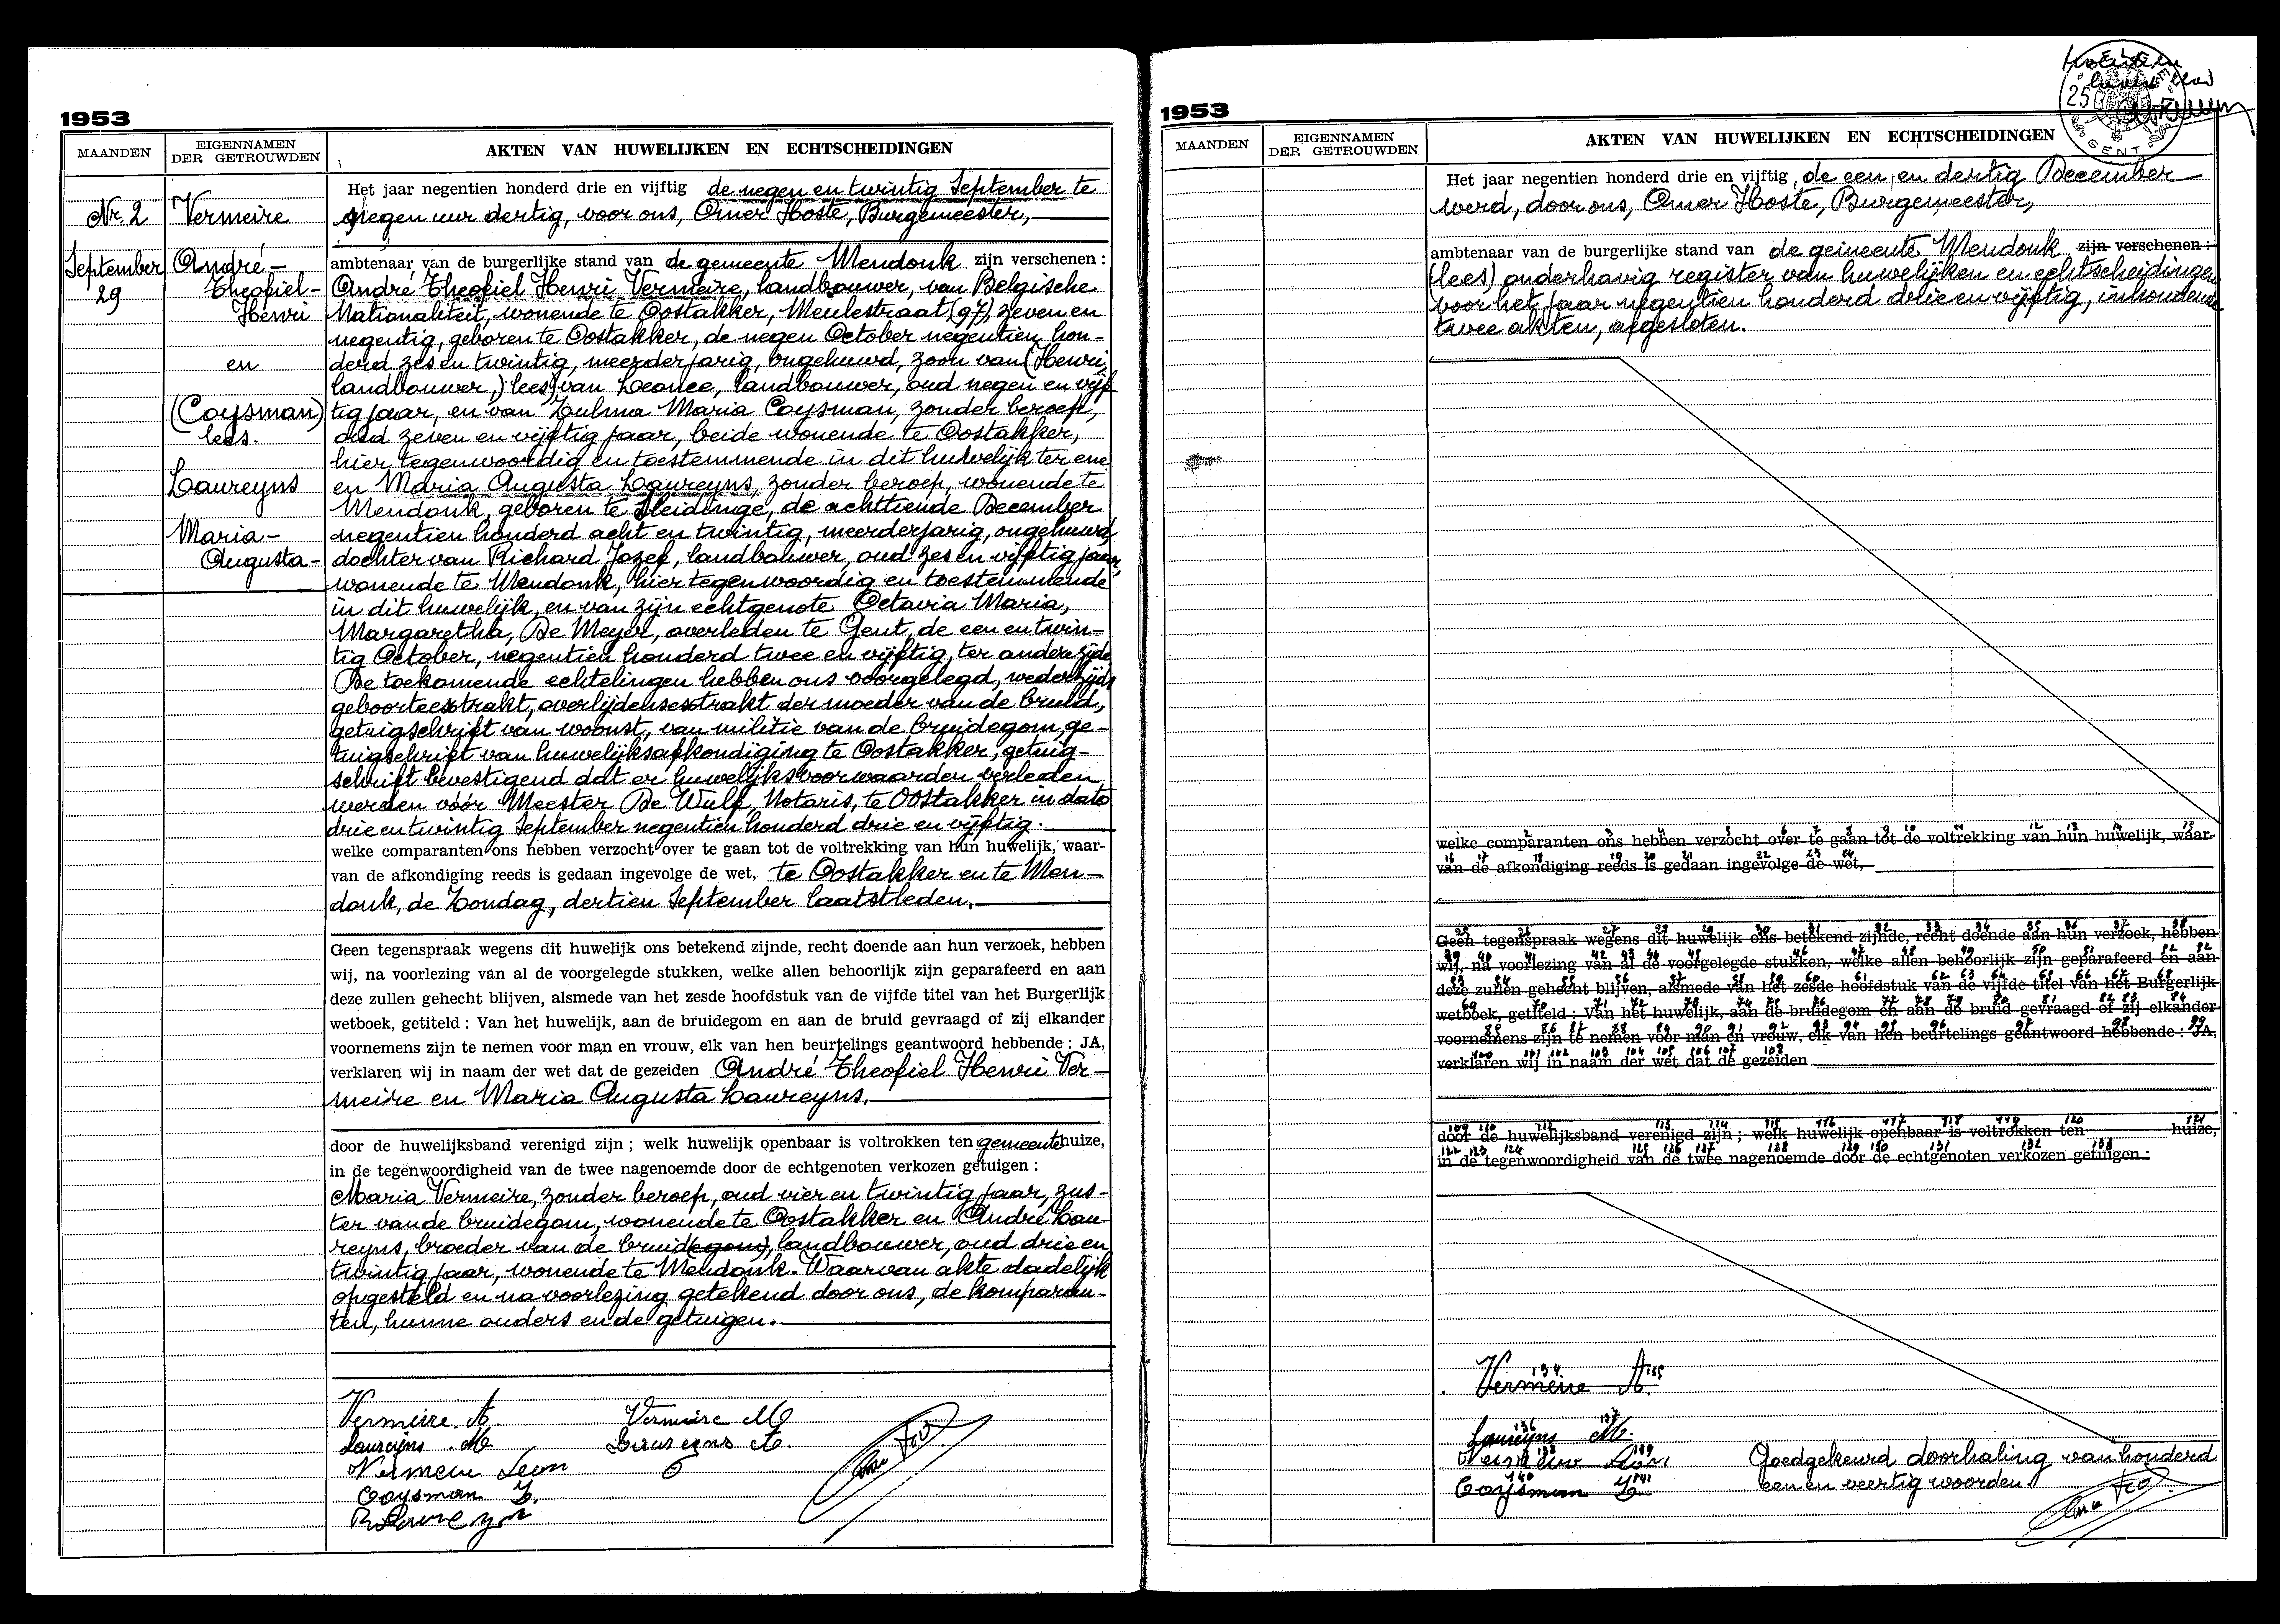 1953
MAANDEN
EIGENNAMEN
DER GETROUWDEN
AKTEN VAN HUWELIJKEN EN ECHTSCHEIDINGEN
Nr. 2
September
29
Vermeire
André-
Theofiel-
Henri
en
(Coysman)
lees.
Laureyns
Maria-
Augusta-
Het jaar negentien honderd drie en vijftig de negen en twintig September te
negen uur dertig, voor ons, Omer Hoste, Burgemeester,
ambtenaar van de burgerlijke stand van de gemeente Mendonk zijn verschenen :
André Theofiel Henri Vermeire, landbouwer, van Belgische
Nationaliteit, wonende te Oostakker, Meulestraat (97) zeven en
negentig, geboren te Oostakker, de negen October negentien hon-
derd zes en twintig, meerderjarig, ongehuwd, zoon van (Henri,
landbouwer,) lees) van Leonce, landbouwer, oud negen en vijf-
tig jaar, en van Zulma Maria Coysman, zonder beroep,
oud zeven en vijftig jaar, beide wonende te Oostakker,
hier tegenwoordig en toestemmende in dit huwelijk ter ene
en Maria Augusta Laureyns, zonder beroep, wonende te
Mendonk, geboren te Sleidinge, de achttiende December
negentien honderd acht en twintig, meerderjarig, ongehuwd,
dochter van Richard Jozef, landbouwer, oud zes en vijftig jaar,
wonende te Mendonk, hier tegenwoordig en toestemmende
in dit huwelijk, en van zijn echtgenote Octavia Maria,
Margaretha, De Meyer, overleden te Gent, de een en twin-
tig October, negentien honderd twee en vijftig, ter andere zijde
De toekomende echtelingen hebben ons voorgelegd, wederzijds
geboorteextrakt, overlijdensextrakt der moeder van de bruid,
getuigschrift van woonst, van militie van de bruidegom, ge-
tuigschrift van huwelijksafkondiging te Oostakker, getuig-
schrift bevestigend dat er huwelijksvoorwaarden verleden
werden vóór Meester De Wulf, Notaris, te Oostakker in dato
drie en twintig September negentien honderd drie en vijftig.
welke comparanten ons hebben verzocht over te gaan tot de voltrekking van hun huwelijk, waar-
van de afkondiging reeds is gedaan ingevolge de wet, te Oostakker en te Men-
donk, de Zondag, dertien September laatstleden.
Geen tegenspraak wegens dit huwelijk ons betekend zijnde, recht doende aan hun verzoek, hebben
wij, na voorlezing van al de voorgelegde stukken, welke allen behoorlijk zijn geparafeerd en aan
deze zullen gehecht blijven, alsmede van het zesde hoofdstuk van de vijfde titel van het Burgerlijk
wetboek, getiteld : Van het huwelijk, aan de bruidegom en aan de bruid gevraagd of zij elkander
voornemens zijn te nemen voor man en vrouw, elk van hen beurtelings geantwoord hebbende : JA,
verklaren wij in naam der wet dat de gezeiden André Theofiel Henri Ver-
meire en Maria Augusta Laureyns.
door de huwelijksband verenigd zijn ; welk huwelijk openbaar is voltrokken ten gemeentehuize,
in de tegenwoordigheid van de twee nagenoemde door de echtgenoten verkozen getuigen :
Maria Vermeire, zonder beroep, oud vier en twintig jaar, zus-
ter van de bruidegom, wonende te Oostakker en André Lau-
reyns, broeder van de bruid(egom), landbouwer, oud drie en
twintig jaar, wonende te Mendonk. Waarvan akte dadelijk
opgesteld en na voorlezing getekend door ons, de komparan-
ten, hunne ouders en de getuigen.
Vermeire. A. Vermeire M
Laureyns. M Laureyns A.
Vermeire Leon
Coysman Z.
R Laureyns
1953
25
GENT
MAANDEN
EIGENNAMEN
DER GETROUWDEN
AKTEN VAN HUWELIJKEN EN ECHTSCHEIDINGEN
Het jaar negentien honderd drie en vijftig, de een en dertig December
werd, door ons, Omer Hoste, Burgemeester,
ambtenaar van de burgerlijke stand van de gemeente Mendonk zijn verschenen :
(lees) onderhavig register van huwelijken en echtscheidingen
voor het jaar negentien honderd drie en vijftig, inhoudende
twee akten, afgesloten.
welke comparanten ons hebben verzocht over te gaan tot de voltrekking van hun huwelijk, waar-
van de afkondiging reeds is gedaan ingevolge de wet,
Geen tegenspraak wegens dit huwelijk ons betekend zijnde, recht doende aan hun verzoek, hebben
wij, na voorlezing van al de voorgelegde stukken, welke allen behoorlijk zijn geparafeerd en aan
deze zullen gehecht blijven, alsmede van het zesde hoofdstuk van de vijfde titel van het Burgerlijk
wetboek, getiteld : Van het huwelijk, aan de bruidegom en aan de bruid gevraagd of zij elkander
voornemens zijn te nemen voor man en vrouw, elk van hen beurtelings geantwoord hebbende : JA,
verklaren wij in naam der wet dat de gezeiden
door de huwelijksband verenigd zijn ; welk huwelijk openbaar is voltrokken ten huize,
in de tegenwoordigheid van de twee nagenoemde door de echtgenoten verkozen getuigen :
Vermeire A.
Laureyns M.
Vermeire Leon
Coysman Z
Goedgekeurd doorhaling van honderd
een en veertig woorden.